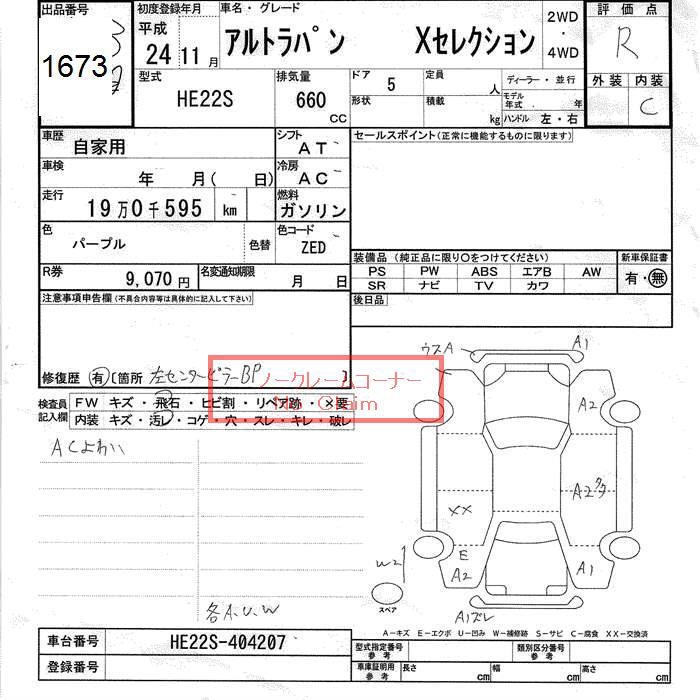 出品番号 初度登録年月 車名・グレード 2WD ・ 4WD 評価点
1673
平成 24 年 11 月 アルトラパン Xセレクション R
型式 HE22S 排気量 660 CC ドア 5 定員 人 ディーラー・並行 外装 内装
形状 積載 kg モデル年式 年 C
ハンドル 左・右
車歴 自家用 シフト AT セールスポイント(正常に機能するものに限ります)
車検 年 月( 日) 冷房 AC
走行 19万0千595 km 燃料 ガソリン
色 パープル 色替 色コード ZED 装備品 (純正品に限り○をつけてください) 新車保証書
PS PW ABS エアB AW 有・無
SR ナビ TV カワ
R券 9,070円 名変通知期限 月 日
後日品
注意事項申告欄(不具合内容等は具体的に記入して下さい)
修復歴 有 〔箇所 左センターピラーBP 〕
ノークレームコーナー
No Claim
検査員記入欄 FW キズ・飛石・ヒビ割・リペア跡・×要
内装 キズ・汚レ・コゲ・穴・スレ・キレ・破レ
ACよわい
各A.U.W
ウスA A1
A2
XX A2
E
A2 A1
W2
スペア
A1ズレ
A-キズ E-エクボ U-凹み W-補修跡 S-サビ C-腐食 XX-交換済
車台番号 HE22S-404207 型式指定番号 参考 類別区分番号 参考
登録番号 車庫証明用 参考 長さ cm 幅 cm 高さ cm